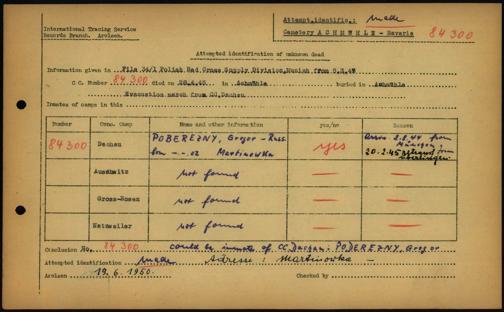 International Tracing Service
Records Branch. Arolsen.
Attempt.identific.: made
Cemetery ACHMÜHLE - Bavaria 84300
Attempted identification of unknown dead
Information given in File 34/1 Polish Red Cross Supply Division, Munich from
C.C. Number 84300 died on in Achmühle buried in Achmühle
Evacuation march from CC, Dachau
Inmates of camp in :
Number Conc. Camp Name and other information yes/no Reason
84300 Dachau POBEREZNY, Gregor - Russ. yes from
born -.-.02 Martinowka München
20.2.45 from
Auschwitz not found —
Gross-Rosen not found —
Natzweiler not found —
Conclusion No. 84300 could be inmate of CC Dachau: POBEREZNY, Gregor
Attempted identification made Adresse: Martinowka —
Arolsen 19.6.1950. Checked by